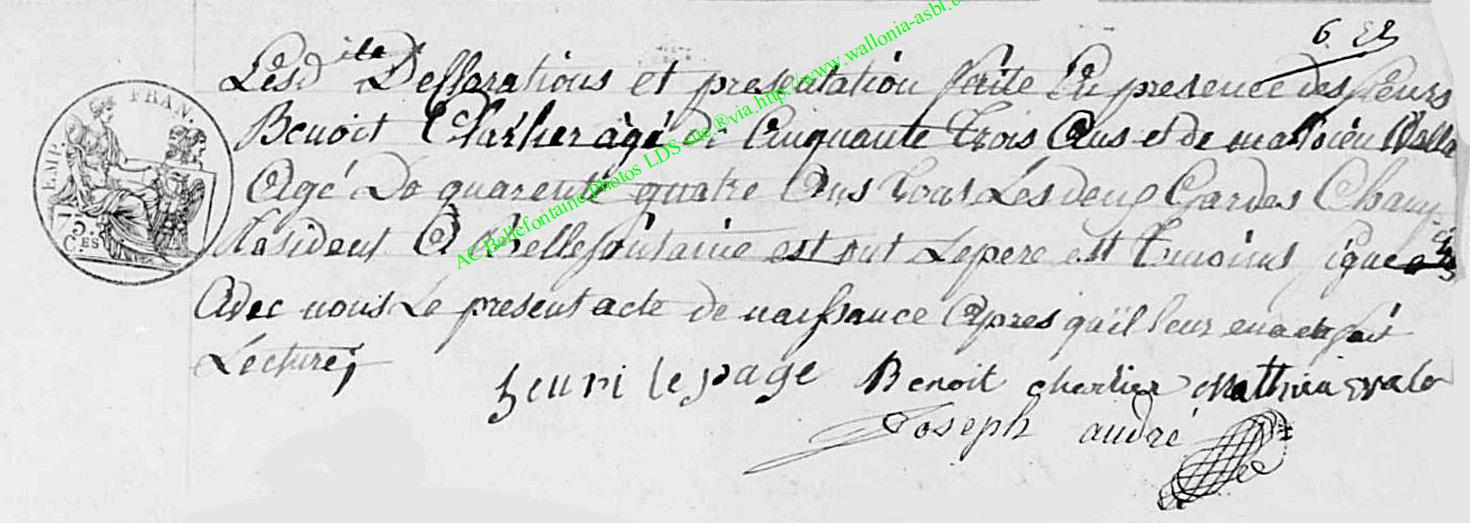 6. 
Lesd ite Desllarations et presentation faite En presence des sieurs
Benoit Charlier âgé de Cinquante trois Ans et de mathieu Walla
Agé De quarente quatre Ans tous Lés deux Gardes Champ.
Rasident A Bellefontaine est ont Lepere est temoins signe
Avec nous Le present acte de naissance Apres qu'il leur en a ete fait
Lecture;
henri lepage Benoit charlier Mathieu wala
Joseph andré
EMP. FRAN.
75.
C.ES
AC Bellefontaine Photos LDS die ®via http://www.wallonia-asbl.b